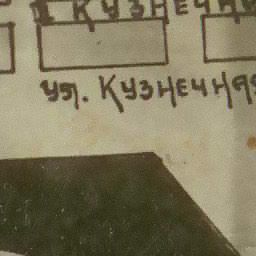 КУЗНЕЧНА
ул. КУЗНЕЧНАЯ